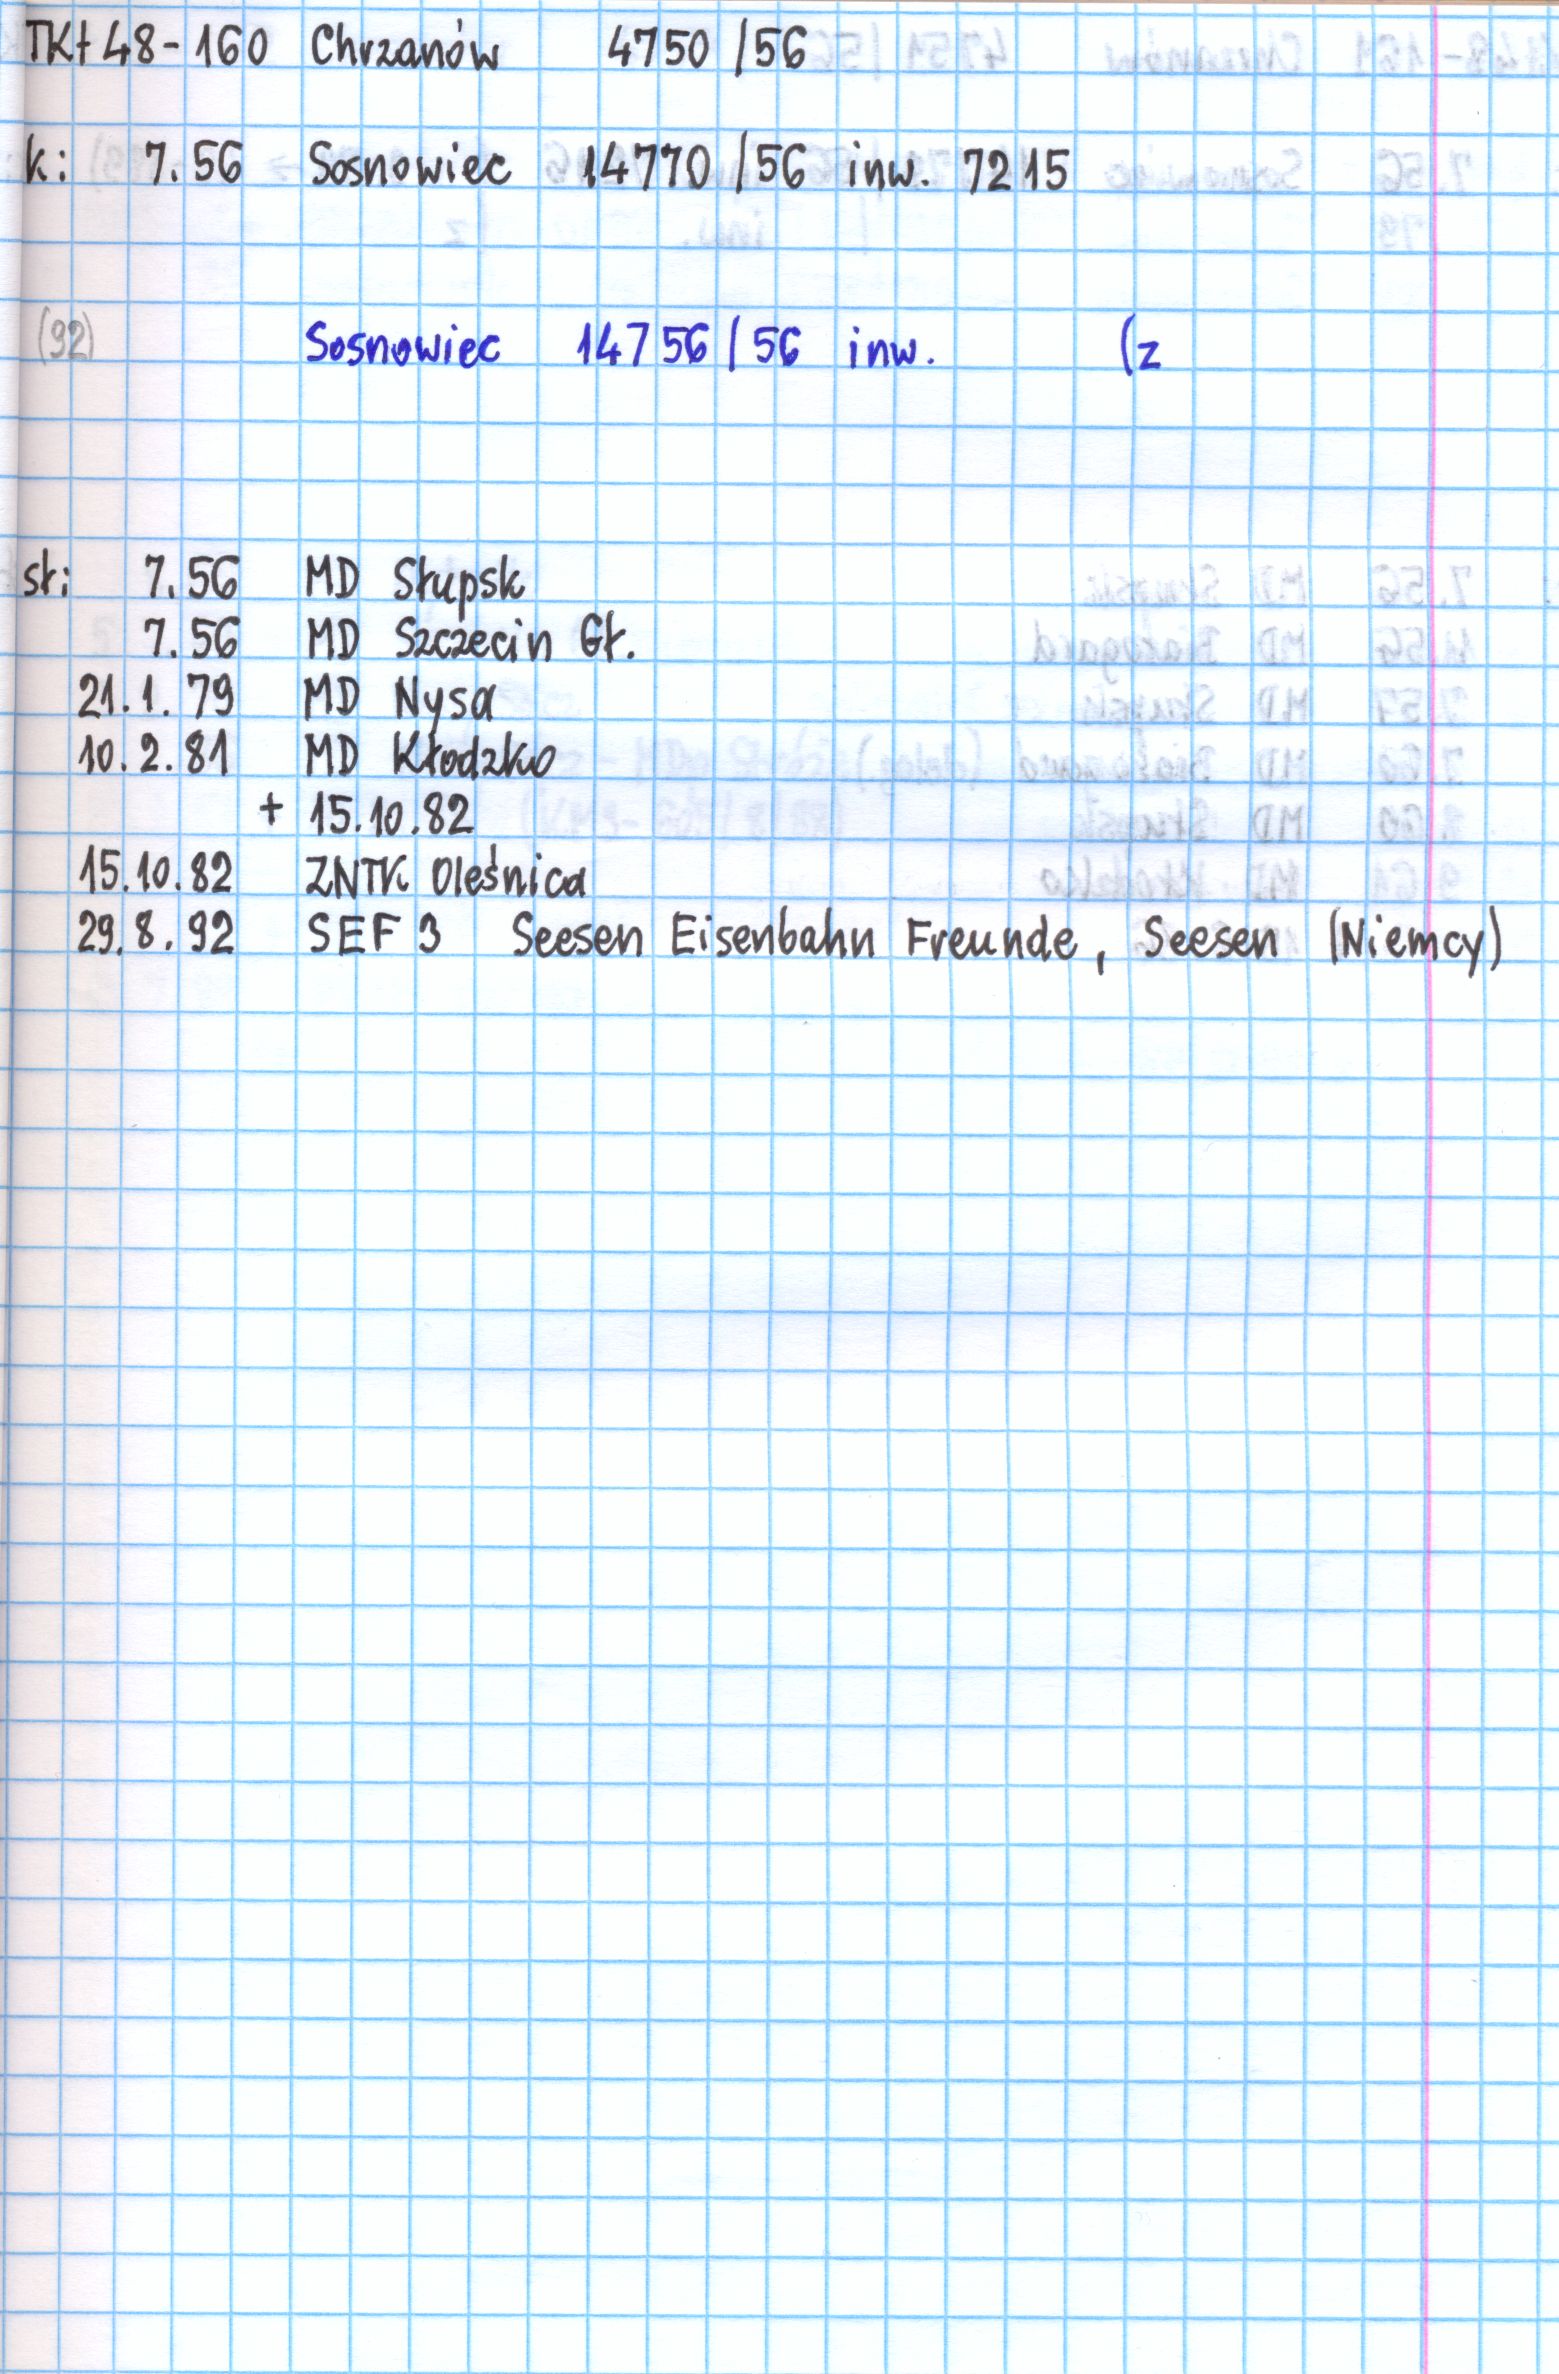 TKt48-160 Chrzanów 4750/56
k: 7.56 Sosnowiec 14770/56 inw. 7215
(92) Sosnowiec 14756/56 inw. (z
st: 7.56 MD Słupsk
7.56 MD Szczecin Gł.
21.1.79 MD Nysa
10.2.81 MD Kłodzko
+ 15.10.82
15.10.82 ZNTK Oleśnica
29.8.92 SEF 3 Seesen Eisenbahn Freunde, Seesen (Niemcy)